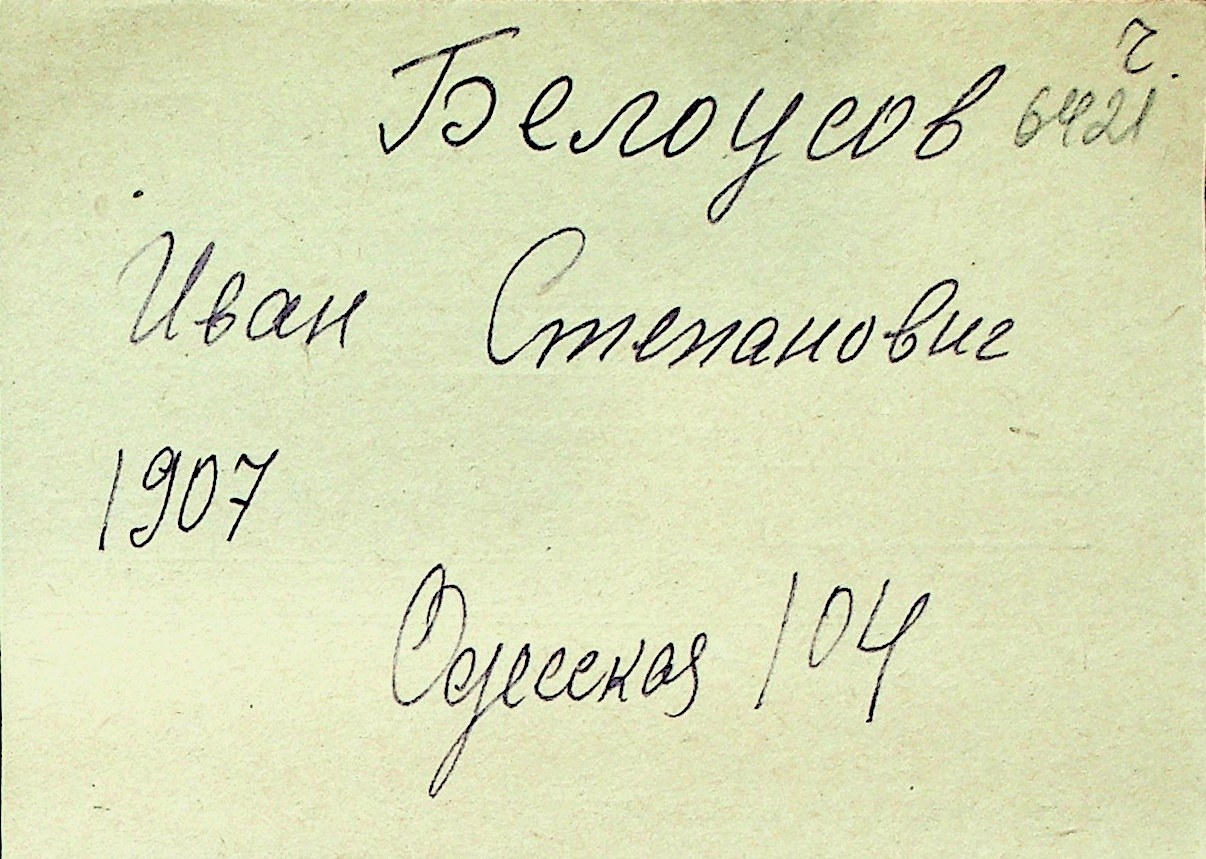 ч.
Белоусов 6421
Иван Степанович
1907
Одесская 104